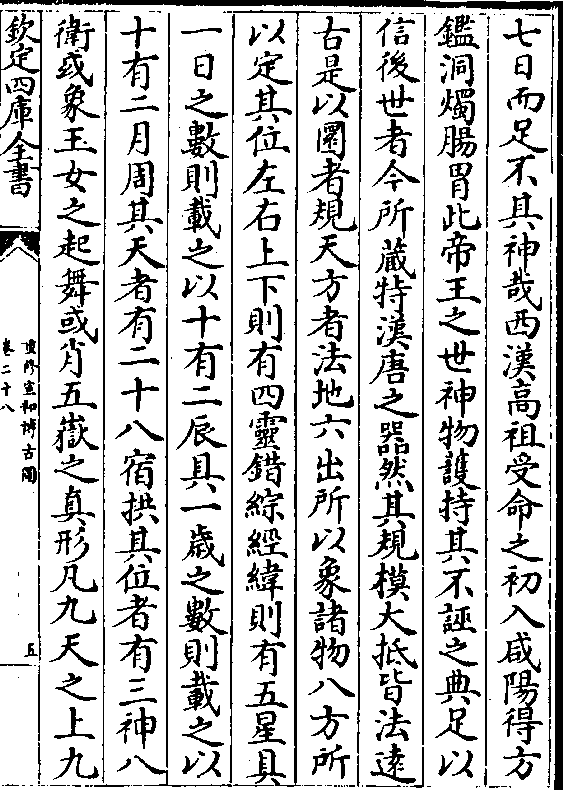 七日而足不其神哉西漢高祖受命之初入咸陽得方
鑑洞燭腸胃此帝王之世神物護持其不誣之典足以
信後世者今所藏特漢唐之器然其規模大抵皆法逺
古是以圜者規天方者法地六出所以象諸物八方所
以定其位左右上下則有四靈錯綜經緯則有五星具
一日之數則載之以十有二辰具一歳之數則載之以
十有二月周其天者有二十八宿拱其位者有三神八
衛或象玉女之起舞或肖五嶽之真形凡九天之上九
欽定四庫全書
重修宣和博古圖
卷二十八
五